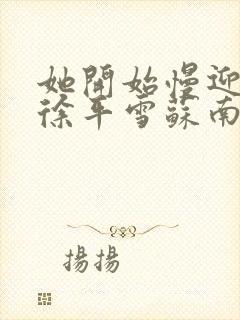 她開始慢迎
徐年雪蘇南
揚揚